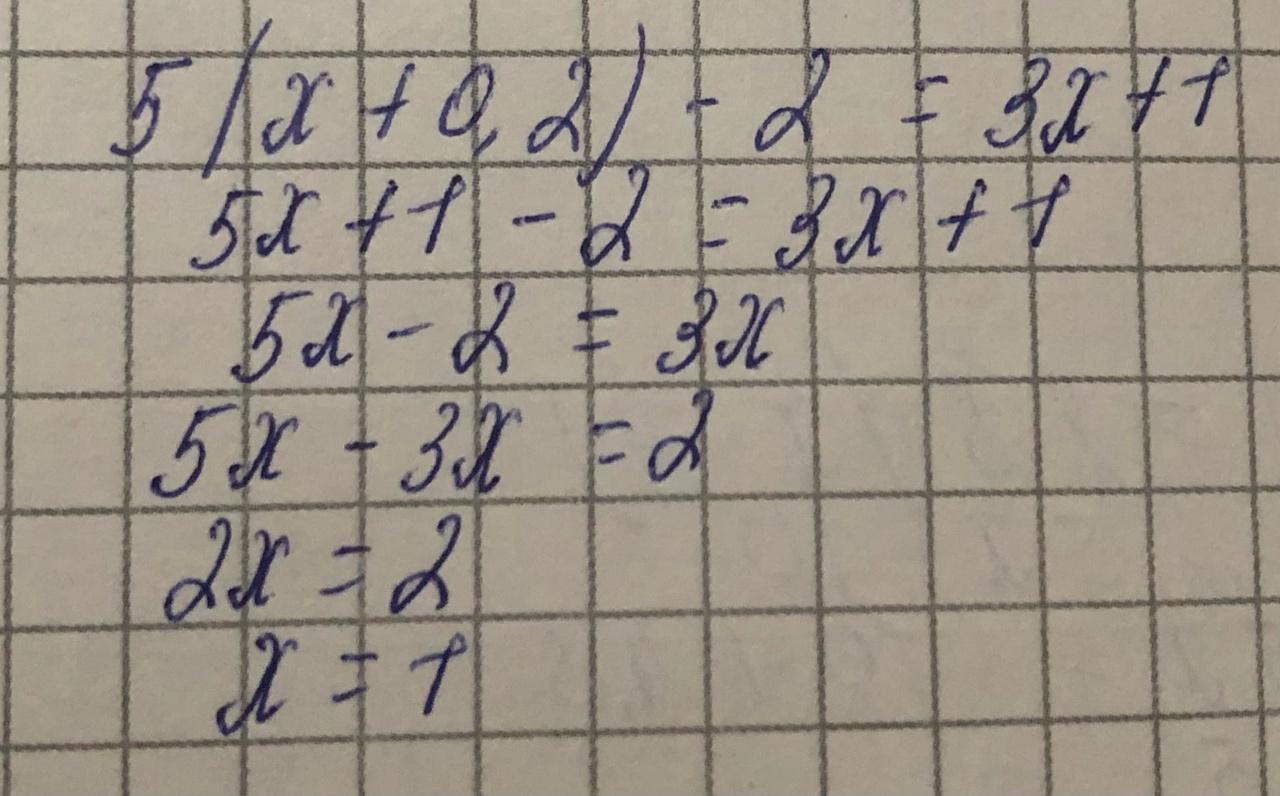 5(x + 0,2) - 2 = 3x + 1
5x + 1 - 2 = 3x + 1
5x - 2 = 3x
5x - 3x = 2
2x = 2
x = 1